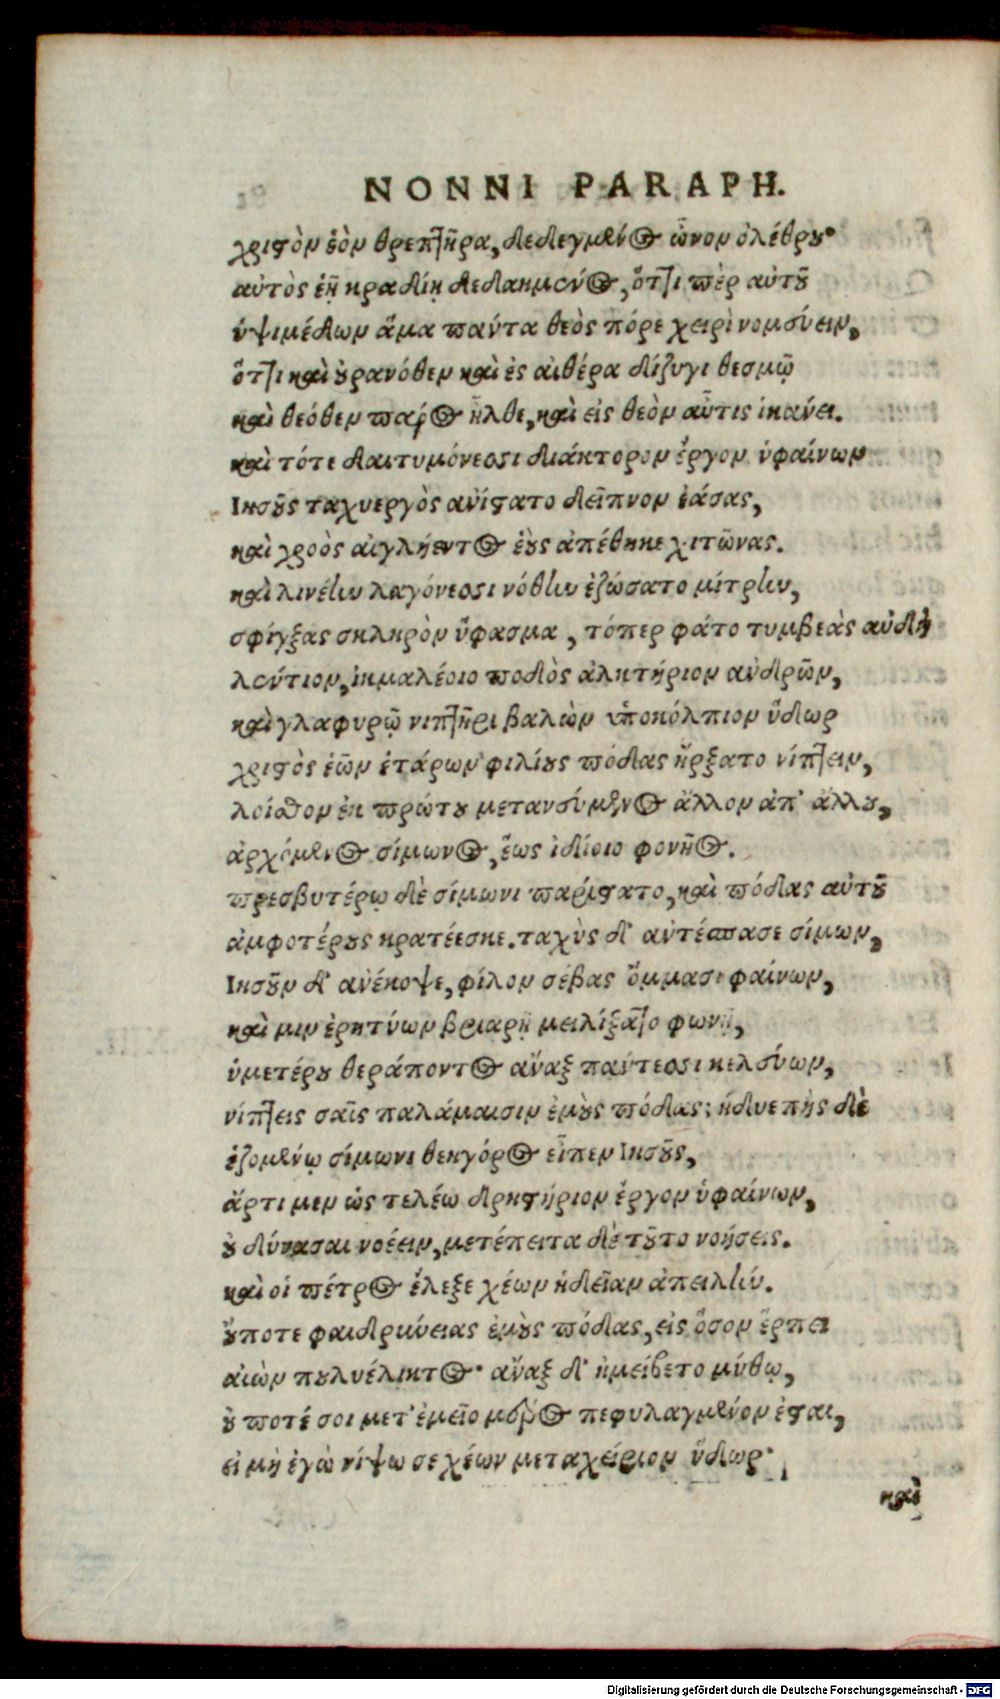 NONNI PARAPH.
χριστὸν ἑὸν θρεπτῆρα, δεδεγμένος ὦνον ὀλέθρου·
αὐτὸς ἑῇ κραδίῃ δεδαημονώς, ὅττι περ αὐτοῦ
ὑψιμέδων ἅμα πάντα θεὸς πόρε χειρὶ νομεύειν,
ὅττι καὶ οὐρανόθεν καὶ ἐς αἰθέρα δίζυγι θεσμῷ
καὶ θεόθεν πάρος ἦλθε, καὶ εἰς θεὸν αὖτις ἱκάνει.
καὶ τότε δαιτυμόνεσσι διάκτορον ἔργον ὑφαίνων
Ιησοῦς ταχυεργὸς ἀνίστατο δεῖπνον ἐάσας,
καὶ χροὸς αἰγλήεντος ἑοὺς ἀπέθηκε χιτῶνας.
καὶ λινέην λαγόνεσσι νόθην ἐζώσατο μίτρην,
σφίγξας σκληρὸν ὕφασμα, τόπερ φάτο τυμβεὰς αὐδὴ
λέντιον, ἰκμαλέοιο ποδὸς ἀλητήριον ἀνδρῶν,
καὶ γλαφυρῷ νιπτῆρι βαλὼν ὑποκόλπιον ὕδωρ
χριστὸς ἑῶν ἑτάρων φιλίους πόδας ἤρξατο νίπτειν,
λοίσθον ἐκ πρώτου μετανεύμενος ἄλλον ἀπ' ἄλλου,
ἀρχόμενος σίμωνος, ἕως ἰδίοιο φονῆος.
πρεσβυτέρῳ δὲ σίμωνι παρίστατο, καὶ πόδας αὐτοῦ
ἀμφοτέρους κρατέεσκε. ταχὺς δ' ἀντέσπασε σίμων,
Ιησοῦν δ' ἀνέκοψε, φίλον σέβας ὄμμασι φαίνων,
καὶ μιν ἐρητύων βριαρῇ μειλίξατο φωνῇ,
ὑμετέρου θεράποντος ἄναξ πάντεσσι κελεύων,
νίπτεις σαῖς παλάμαισιν ἐμοὺς πόδας; ἡδυεπὴς δὲ
ἑζομένῳ σίμωνι θεηγόρος εἶπεν Ιησοῦς,
ἄρτι μεν ὡς τελέω δρηστήριον ἔργον ὑφαίνων,
οὐ δύνασαι νοέειν, μετέπειτα δὲ τοῦτο νοήσεις.
καὶ οἱ πέτρος ἔλεξε χέων ἡδεῖαν ἀπειλήν.
οὔποτε φαιδρύνειας ἐμοὺς πόδας, εἰς ὅσον ἕρπει
αἰὼν πουλυέλικτος· ἄναξ δ' ἠμείβετο μύθῳ,
οὐ ποτέ σοι μετ' ἐμεῖο μέρος πεφυλαγμένον ἔσται,
εἰ μὴ ἐγὼ νίψω σε χέων μεταχείριον ὕδωρ·
καὶ
Digitalisierung gefördert durch die Deutsche Forschungsgemeinschaft - DFG